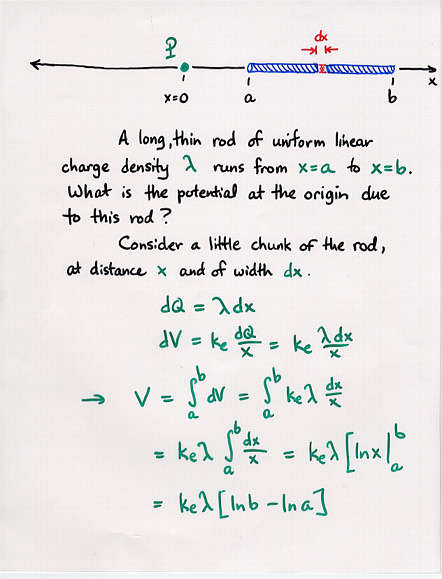 dx
P
x=0
a
b
x
A long, thin rod of uniform linear
charge density λ runs from x=a to x=b.
What is the potential at the origin due
to this rod?
Consider a little chunk of the rod,
at distance x and of width dx.
dQ = λdx
dV = ke dQ/x = ke λdx/x
→ V = ∫ₐᵇ dV = ∫ₐᵇ keλ dx/x
= keλ ∫ₐᵇ dx/x = keλ [lnx|ₐᵇ
= keλ[lnb - lna]